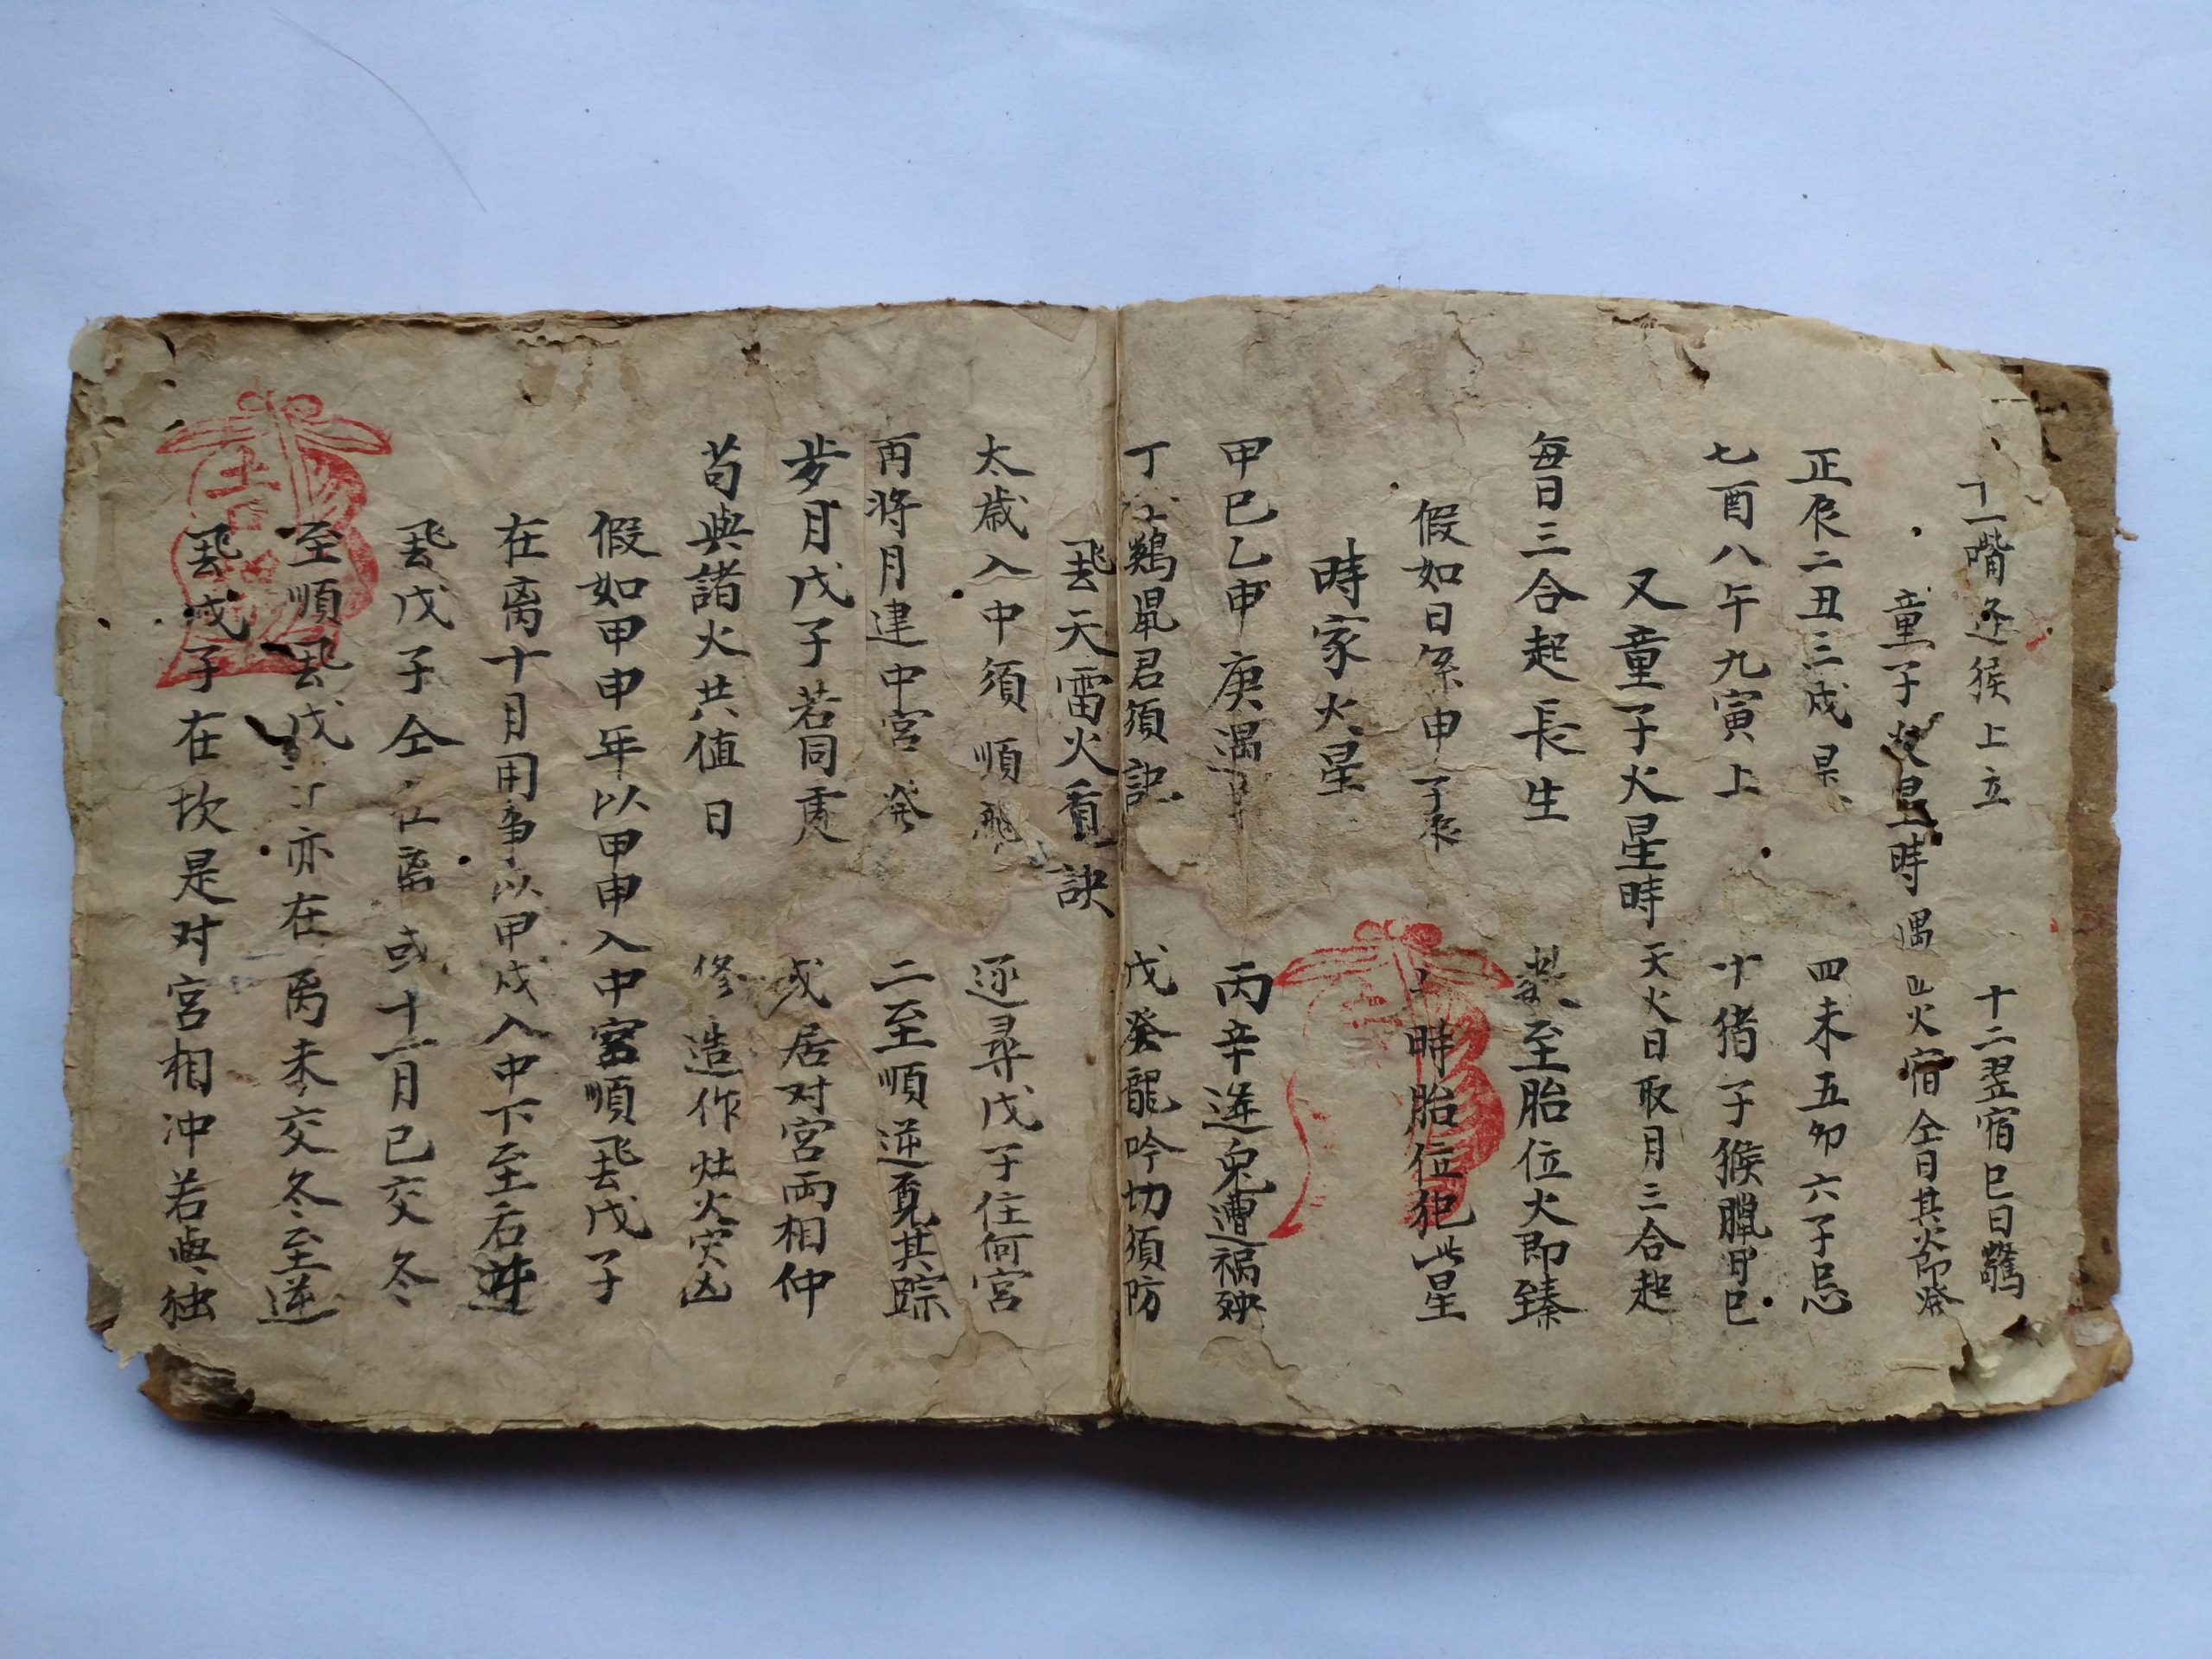 十一嘴逢猴上立 十二翌宿巳日驚
童子火星時 遇火宿仝日其火即發
正辰二丑三戍是 四未五卯六子忌
七酉八午九寅上 十猪子猴臘月巳
又童子火星時 天火日取月三合起
每日三合起長生 至胎位火即臻
假如日係申子辰 時胎位犯此星
時家火星
甲巳乙申庚遇 丙辛逢兔遭禍殃
丁 鷄鼠君須記 戊癸龍吟切須防
飛天雷火看訣
太歲入中須順飛 逐尋戊子住何宮
再將月建中宮發 二至順逆覓其踪
歲月戊子若同處 或居对宮両相冲
苟與諸火共值日 修造作灶火灾凶
假如甲申年以甲申入中宮順飛戊子
在离十月用事以甲戍入中下至后逆
飛戊子仝在离或十一月已交冬
至順飛戊子亦在离未交冬至逆
飛戊子在坎是对宮相冲若與独